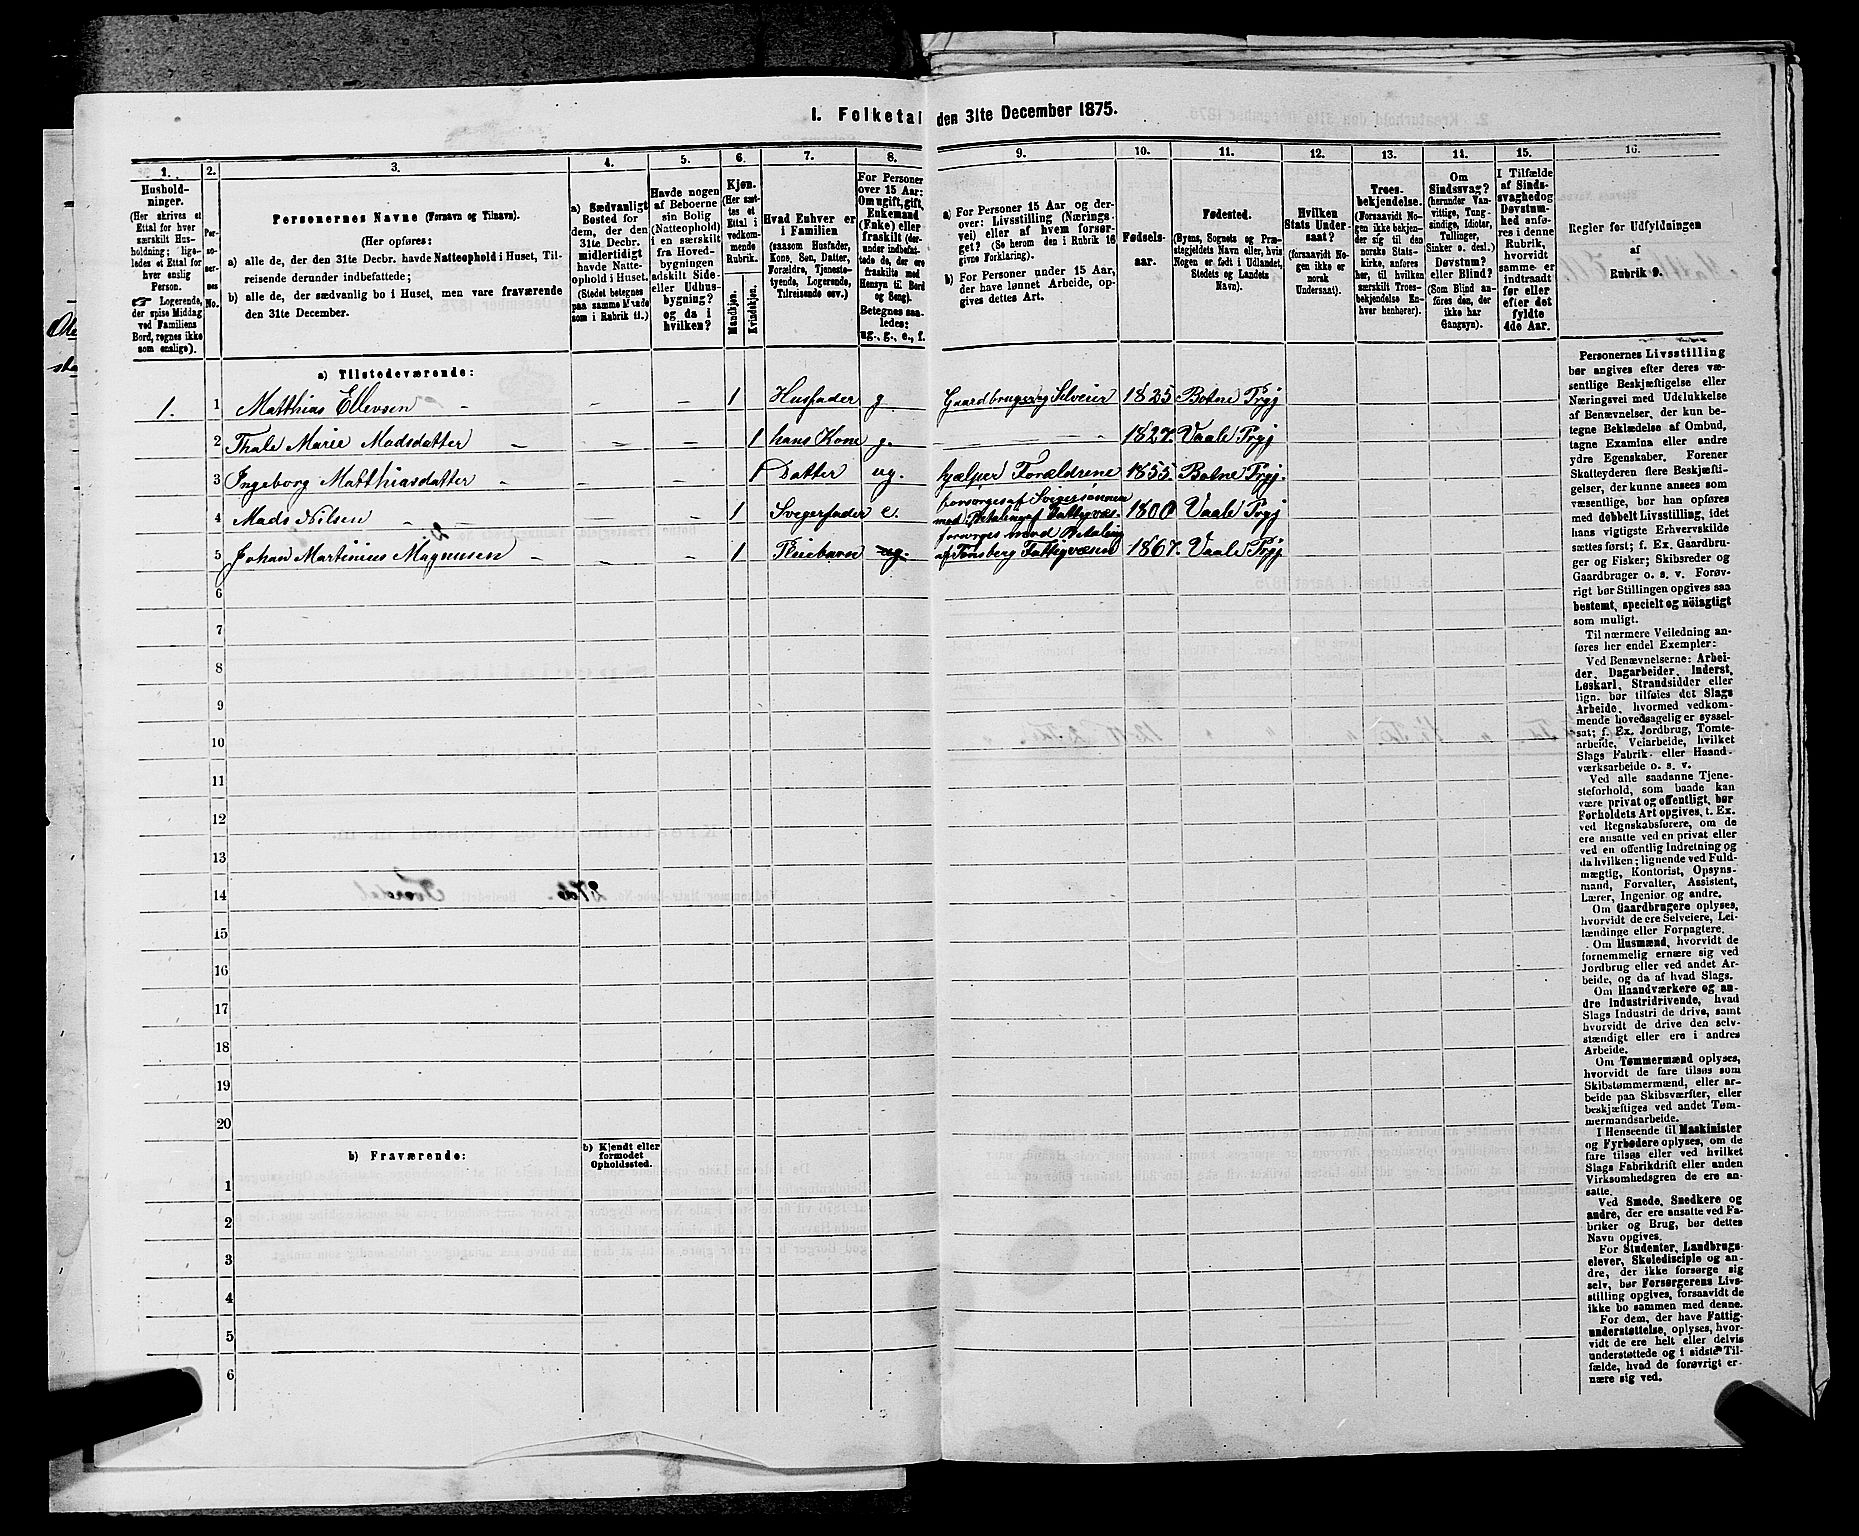 1. Folketal den 31te December 1875.
1.
Hushold-
ninger.
(Her skrives et
Ettal for hver
særskilt Hus-
holdning; liga-
ledes et Ettal for
hver enslig
Person.
☞ Logerende,
der spise Middag
ved Familiens
Bord, regnes ikke
som enslige).
2.
Per-
so-
ner-
nes
No.
3.
Personernes Navne (Fornavn og Tilnavn).
(Her opføres:
a) alle de, der den 31te Decbr. havde Natteophold i Huset, Til-
reisende derunder indbefattede;
b) alle de, der sædvanlig bo i Huset, men vare fraværende
den 31te December.
4.
a) Sædvanligt
Bosted for
dem, der den
31te Decbr.
midlertidigt
havde Natte-
ophold i Huset
(Stedet betegnes
paa samme Maade
som i Rubrik 11.)
5.
Havde nogen
af Beboerne
sin Bolig
(Natteophold)
i en særskilt
fra Hoved-
bygningen
adskilt Side-
eller Udhus-
bygning?
og da i
hvilken?
6.
Kjøn.
(Her sæt-
tes et
Ettal i
vedkom-
mende
Rubrik.
Mandkjøn.
Kvindekjøn.
7.
Hvad Enhver er
i Familien
(saasom Husfader,
Kone, Søn, Datter,
Forældre, Tjeneste-
tyende, Logerende,
Tilreisende osv.)
8.
For Personer
over 15 Aar:
Om ugift, gift,
Enkemand
(Enke) eller
fraskilt (der-
under indbefat-
tede de, der ere
fraskilte med
Hensyn til Bord
og Seng).
Betegnes saa-
ledes:
ug., g., e., f.
9.
a) For Personer 15 Aar og der-
over: Livsstilling (Nærings-
vei) eller af hvem forsør-
get? (Se herom den i Rubrik 16
givne Forklaring).
b) For Personer under 15 Aar,
der have lønnet Arbeide, op-
gives dettes Art.
10.
Fødsels-
aar.
11.
Fødested.
(Byens, Sognets og Præ-
stegjeldets Navn, eller, hvis
Nogen er født i Udlandet,
Stedets og Landets
Navn).
12.
Hvilken
Stats Under-
saat?
(forsaavidt No-
gen ikke er
norsk
Undersaat).
13.
Troes-
bekjendelse.
(Forsaavidt No-
gen ikke bekjen-
der sig til den
norske Stats-
kirke, anføres
her, til hvilken
særskilt Troes-
bekjendelse En-
hver henhører).
14.
Om
Sindssvag?
(herunder Van-
vittige, Tung-
sindige, Idioter,
Tullinger,
Sinker o. desl.).
Døvstum?
eller Blind?
(Som Blind an-
føres den, der
ikke har
Gangsyn).
15.
I Tilfælde
af Sinds-
svaghed og
Døvstum-
hed anfø-
res i denne
Rubrik,
hvorvidt
samme er
indtraadt
før eller
efter det
fyldte
4de Aar.
16.
Regler for Udfyldningen
af
Rubrik 9.
a) Tilstedeværende:
1. 1 Matthias Ellevsen - - - 1 Husfader g. Gaardbruger og Selveier 1825 Botne Prgj
2 Thale Marie Madsdatter - - - 1 hans Kone g. - 1827. Vaale Prgj
3 Ingeborg Matthiasdatter - - - 1 Datter ug. hjælper Forældrene 1855 Botne Prgj.
4 Mads Nilsen - - - 1 Svegerfader e. forsørges af Svigersønnen
med Betaling af Fattigvæs. 1800 Vaale Prgj
5 Johan Martinius Magnusen - - 1 Pleiebarn ug. forsørges mod Betaling
af Tønsberg Fattigvæsen 1867. Vaale Prgj.
6
7
8
9
10
11
12
13
14
15
16
17
18
19
20
b) Fraværende:
b) Kjendt eller
formodet
Opholdssted.
1
2
3
4
5
6
Personernes Livsstilling
bør angives efter deres væ-
sentlige Beskjæftigelse eller
Næringsvei med Udelukkelse
af Benævnelser, der kun be-
tegne Beklædelse af Ombud,
tagne Examina eller andre
ydre Egenskaber. Forener
Skatteyderen flere Beskjæfti-
gelser, der kunne ansees som
væsentlige, bør han opføres
med dobbelt Livsstilling, idet
hans vigtigste Erhvervskilde
sættes først; f. Ex. Gaardbru-
ger og Fisker; Skibsreder og
Gaardbruger o. s. v. Forøv-
rigt bør Stillingen opgives saa
bestemt, specielt og nöiagtigt
som muligt.
Til nærmere Veiledning an-
føres her endel Exempler:
Ved Benævnelserne: Arbei-
der, Dagarbeider, Inderst,
Løskarl, Strandsidder eller
lign. bør tilføies det Slags
Arbeide, hvormed vedkom-
mende hovedsagelig er syssel-
sat; f. Ex. Jordbrug, Tomte-
arbeide, Veiarbeide, hvilket
Slags Fabrik- eller Haand-
værksarbeide o. s. v.
Ved alle saadanne Tjene-
steforhold, som baade kan
være privat og offentligt, bør
Forholdets Art opgives, t. Ex.
ved Regnskabsførere, om de
ere ansatte ved en privat eller
ved en offentlig Indretning og
da hvilken; lignende ved Fuld-
mægtig, Kontorist, Opsyns-
mand, Forvalter, Assistent,
Lærer, Ingeniør og andre.
Om Gaardbrugere oplyses,
hvorvidt de ere Selveiere, Lei-
lændinge eller Forpagtere.
Om Husmænd, hvorvidt de
fornemmelig ernære sig ved
Jordbrug eller ved andet Ar-
beide, og da af hvad Slags.
Om Haandværkere og an-
dre Industridrivende, hvad
Slags Industri de drive, samt
hvorvidt de drive den selv-
stændigt eller ere i andres
Arbeide.
Om Tømmermænd oplyses,
hvorvidt de fare tilsøs som
Skibstømmermænd, eller ar-
beide paa Skibsværfter, eller
beskjæftiges ved andet Tøm-
mermandsarbeide.
I Henseende til Maskinister
og Fyrbødere oplyses, om de
fare tilsøs eller ved hvilket
Slags Fabrikdrift eller anden
Virksomhedsgren de ere an-
satte.
Ved Smede, Snedkere og
andre, der ere ansatte ved Fa-
briker og Brug, bør dettes
Navn opgives.
For Studenter, Landbrugs-
elever, Skoledisciple og an-
dre, der ikke forsørge sig
selv, bør Forsørgerens Livs-
stilling opgives, forsaavidt de
ikke bo sammen med denne.
For dem, der have Fattig-
understøttelse, oplyses, hvor-
vidt de ere helt eller delvis
understøttede og i sidste Til-
fælde, hvad de forøvrigt er-
nære sig ved.